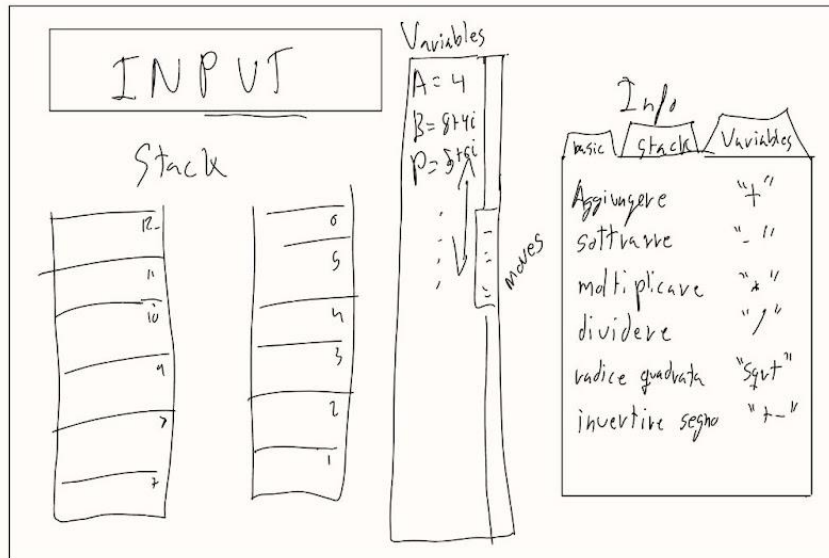 INPUT
Stack
12
11
10
9
7
6
5
4
3
2
1
Variables
A = 4
B = 8+4i
moves
Info
basic
Stack
Variables
Aggiungere "+"
sottrarre "-"
moltiplicare "*"
dividere "/"
radice quadrata "Sqrt"
invertire segno "+-"